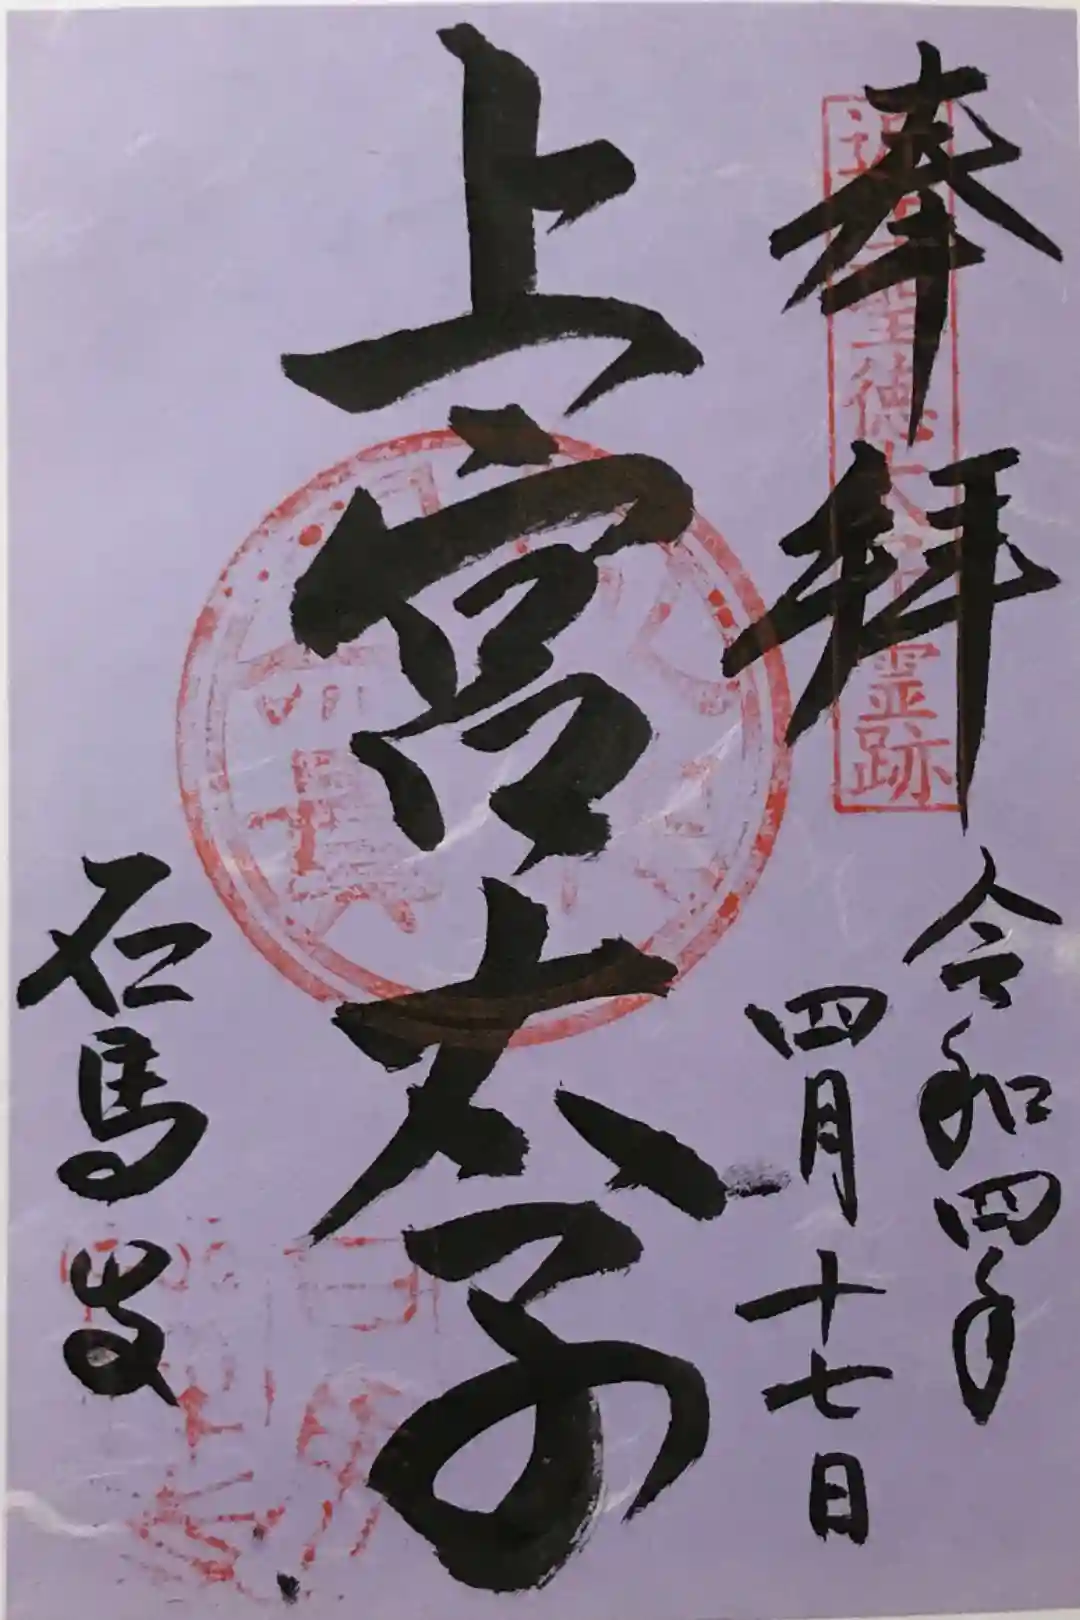 奉拝
近江聖徳太子霊跡
令和四年
四月十七日
上宮太子
石馬寺